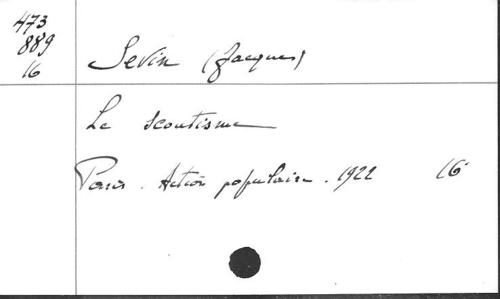 473
889
16
Sevin (Jacques)
Le scoutisme
Paris. Action populaire. 1922 16°